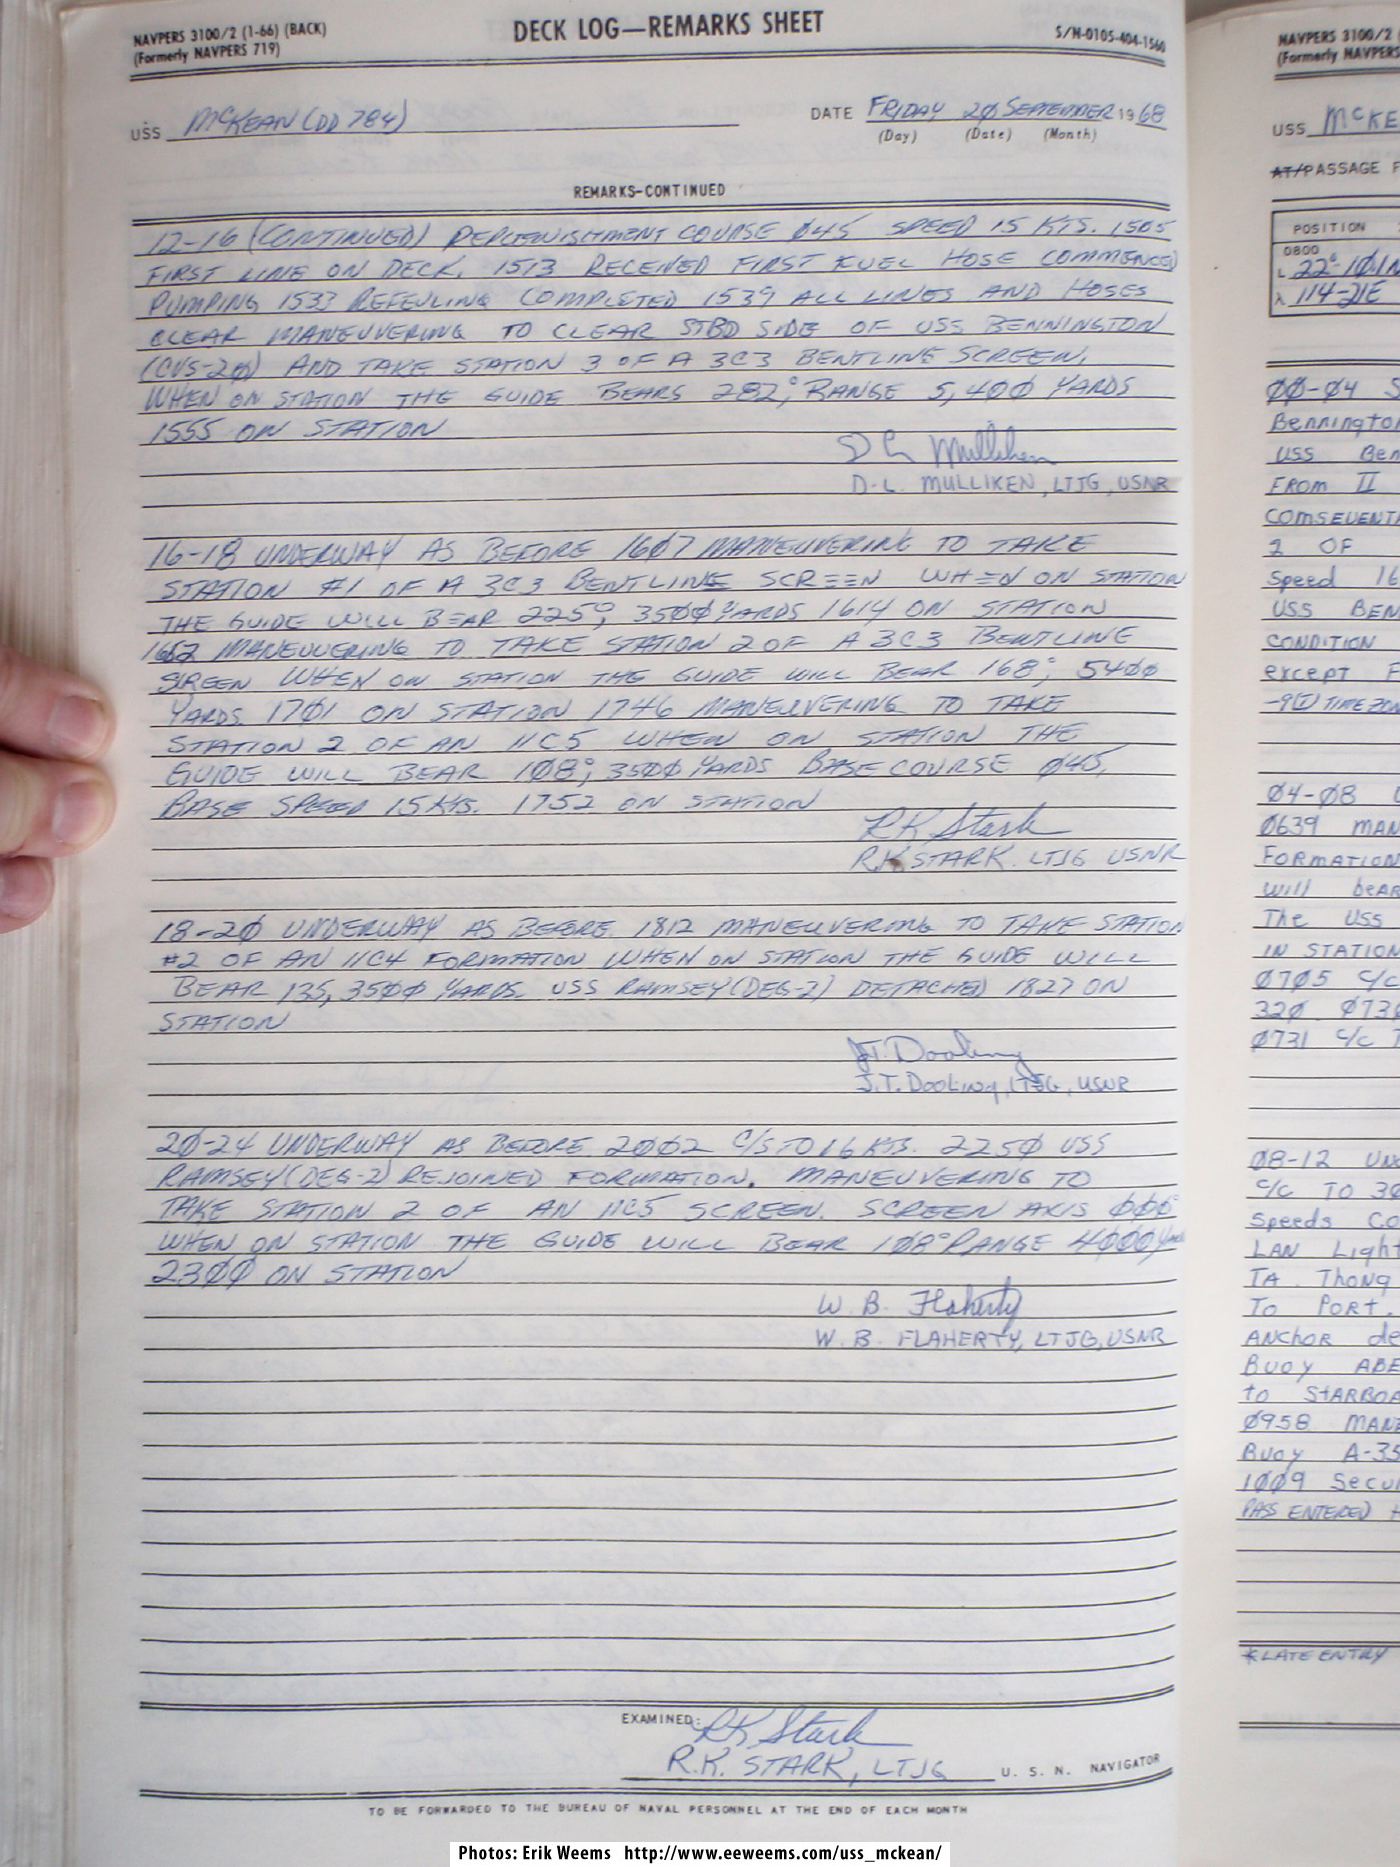 NAVPERS 3100/2 (1-66) (BACK)
(Formerly NAVPERS 719)
DECK LOG—REMARKS SHEET
S/N-0105-404-1560
USS McKEAN (DD 784)
DATE FRIDAY 20 SEPTEMBER 1968
(Day) (Date) (Month)
REMARKS-CONTINUED
12-16 (CONTINUED) REPLENISHMENT COURSE Ø45 SPEED 15 KTS. 1505
FIRST LINE ON DECK. 1513 RECEIVED FIRST FUEL HOSE COMMENCED
PUMPING 1533 REFEULING COMPLETED 1539 ALL LINES AND HOSES
CLEAR MANEUVERING TO CLEAR STBD SIDE OF USS BENNINGTON
(CVS-2Ø) AND TAKE STATION 3 OF A 3C3 BENTLINE SCREEN.
WHEN ON STATION THE GUIDE BEARS 282°, RANGE 5,4ØØ YARDS
1555 ON STATION
D L Mulliken
D.L. MULLIKEN, LTJG, USNR
16-18 UNDERWAY AS BEFORE 16Ø7 MANEUVERING TO TAKE
STATION #1 OF A 3C3 BENTLINE SCREEN WHEN ON STATION
THE GUIDE WILL BEAR 225°, 35ØØ YARDS 1614 ON STATION
MANEUVERING TO TAKE STATION 2 OF A 3C3 BENTLINE
SCREEN WHEN ON STATION THE GUIDE WILL BEAR 168°, 54ØØ
YARDS. 17Ø1 ON STATION 1746 MANEUVERING TO TAKE
STATION 2 OF AN 11C5 WHEN ON STATION THE
GUIDE WILL BEAR 1Ø8°, 35ØØ YARDS BASE COURSE Ø45,
BASE SPEED 15 KTS. 1752 ON STATION
RK Stark
R.K. STARK. LTJG USNR
18-2Ø UNDERWAY AS BEFORE. 1812 MANEUVERING TO TAKE STATION
#2 OF AN 11C4 FORMATION WHEN ON STATION THE GUIDE WILL
BEAR 135, 35ØØ YARDS. USS RAMSEY (DEG-2) DETACHED 1827 ON
STATION
J.T. Dooling
J.T. DOOLING, LTJG, USNR
2Ø-24 UNDERWAY AS BEFORE. 2ØØ2 C/S TO 16 KTS. 225Ø USS
RAMSEY (DEG-2) REJOINED FORMATION. MANEUVERING TO
TAKE STATION 2 OF AN 11C5 SCREEN. SCREEN AXIS ØØØ°
WHEN ON STATION THE GUIDE WILL BEAR 1Ø8° RANGE 4ØØØ Yards
23ØØ ON STATION
W. B. Flaherty
W. B. FLAHERTY, LTJG, USNR
EXAMINED:
RK Stark
R.K. STARK, LTJG U. S. N. NAVIGATOR
TO BE FORWARDED TO THE BUREAU OF NAVAL PERSONNEL AT THE END OF EACH MONTH
NAVPERS 3100/2
(Formerly NAVPERS
USS McKE
AT/PASSAGE F
POSITION
0800
L 22°-10'N
λ 114-21E
ØØ-Ø4 S
Bennington
USS Ben
FROM II
COMSEVENT
2 OF
Speed 16
USS BEN
CONDITION
except F
-9(I) TIME ZON
Ø4-Ø8 U
Ø639 MAN
FORMATION
will bear
The USS
IN STATION
Ø7Ø5 C/C
32Ø. Ø73
Ø731 C/C T
Ø8-12 UN
C/C TO 3
Speeds Co
LAN Light
TA Thong
To Port.
ANCHOR de
Buoy ABE
to STARBOA
Ø958 MANE
Buoy A-35
1ØØ9 Secu
PASS ENTERED
*LATE ENTRY
Photos: Erik Weems http://www.eeweems.com/uss_mckean/